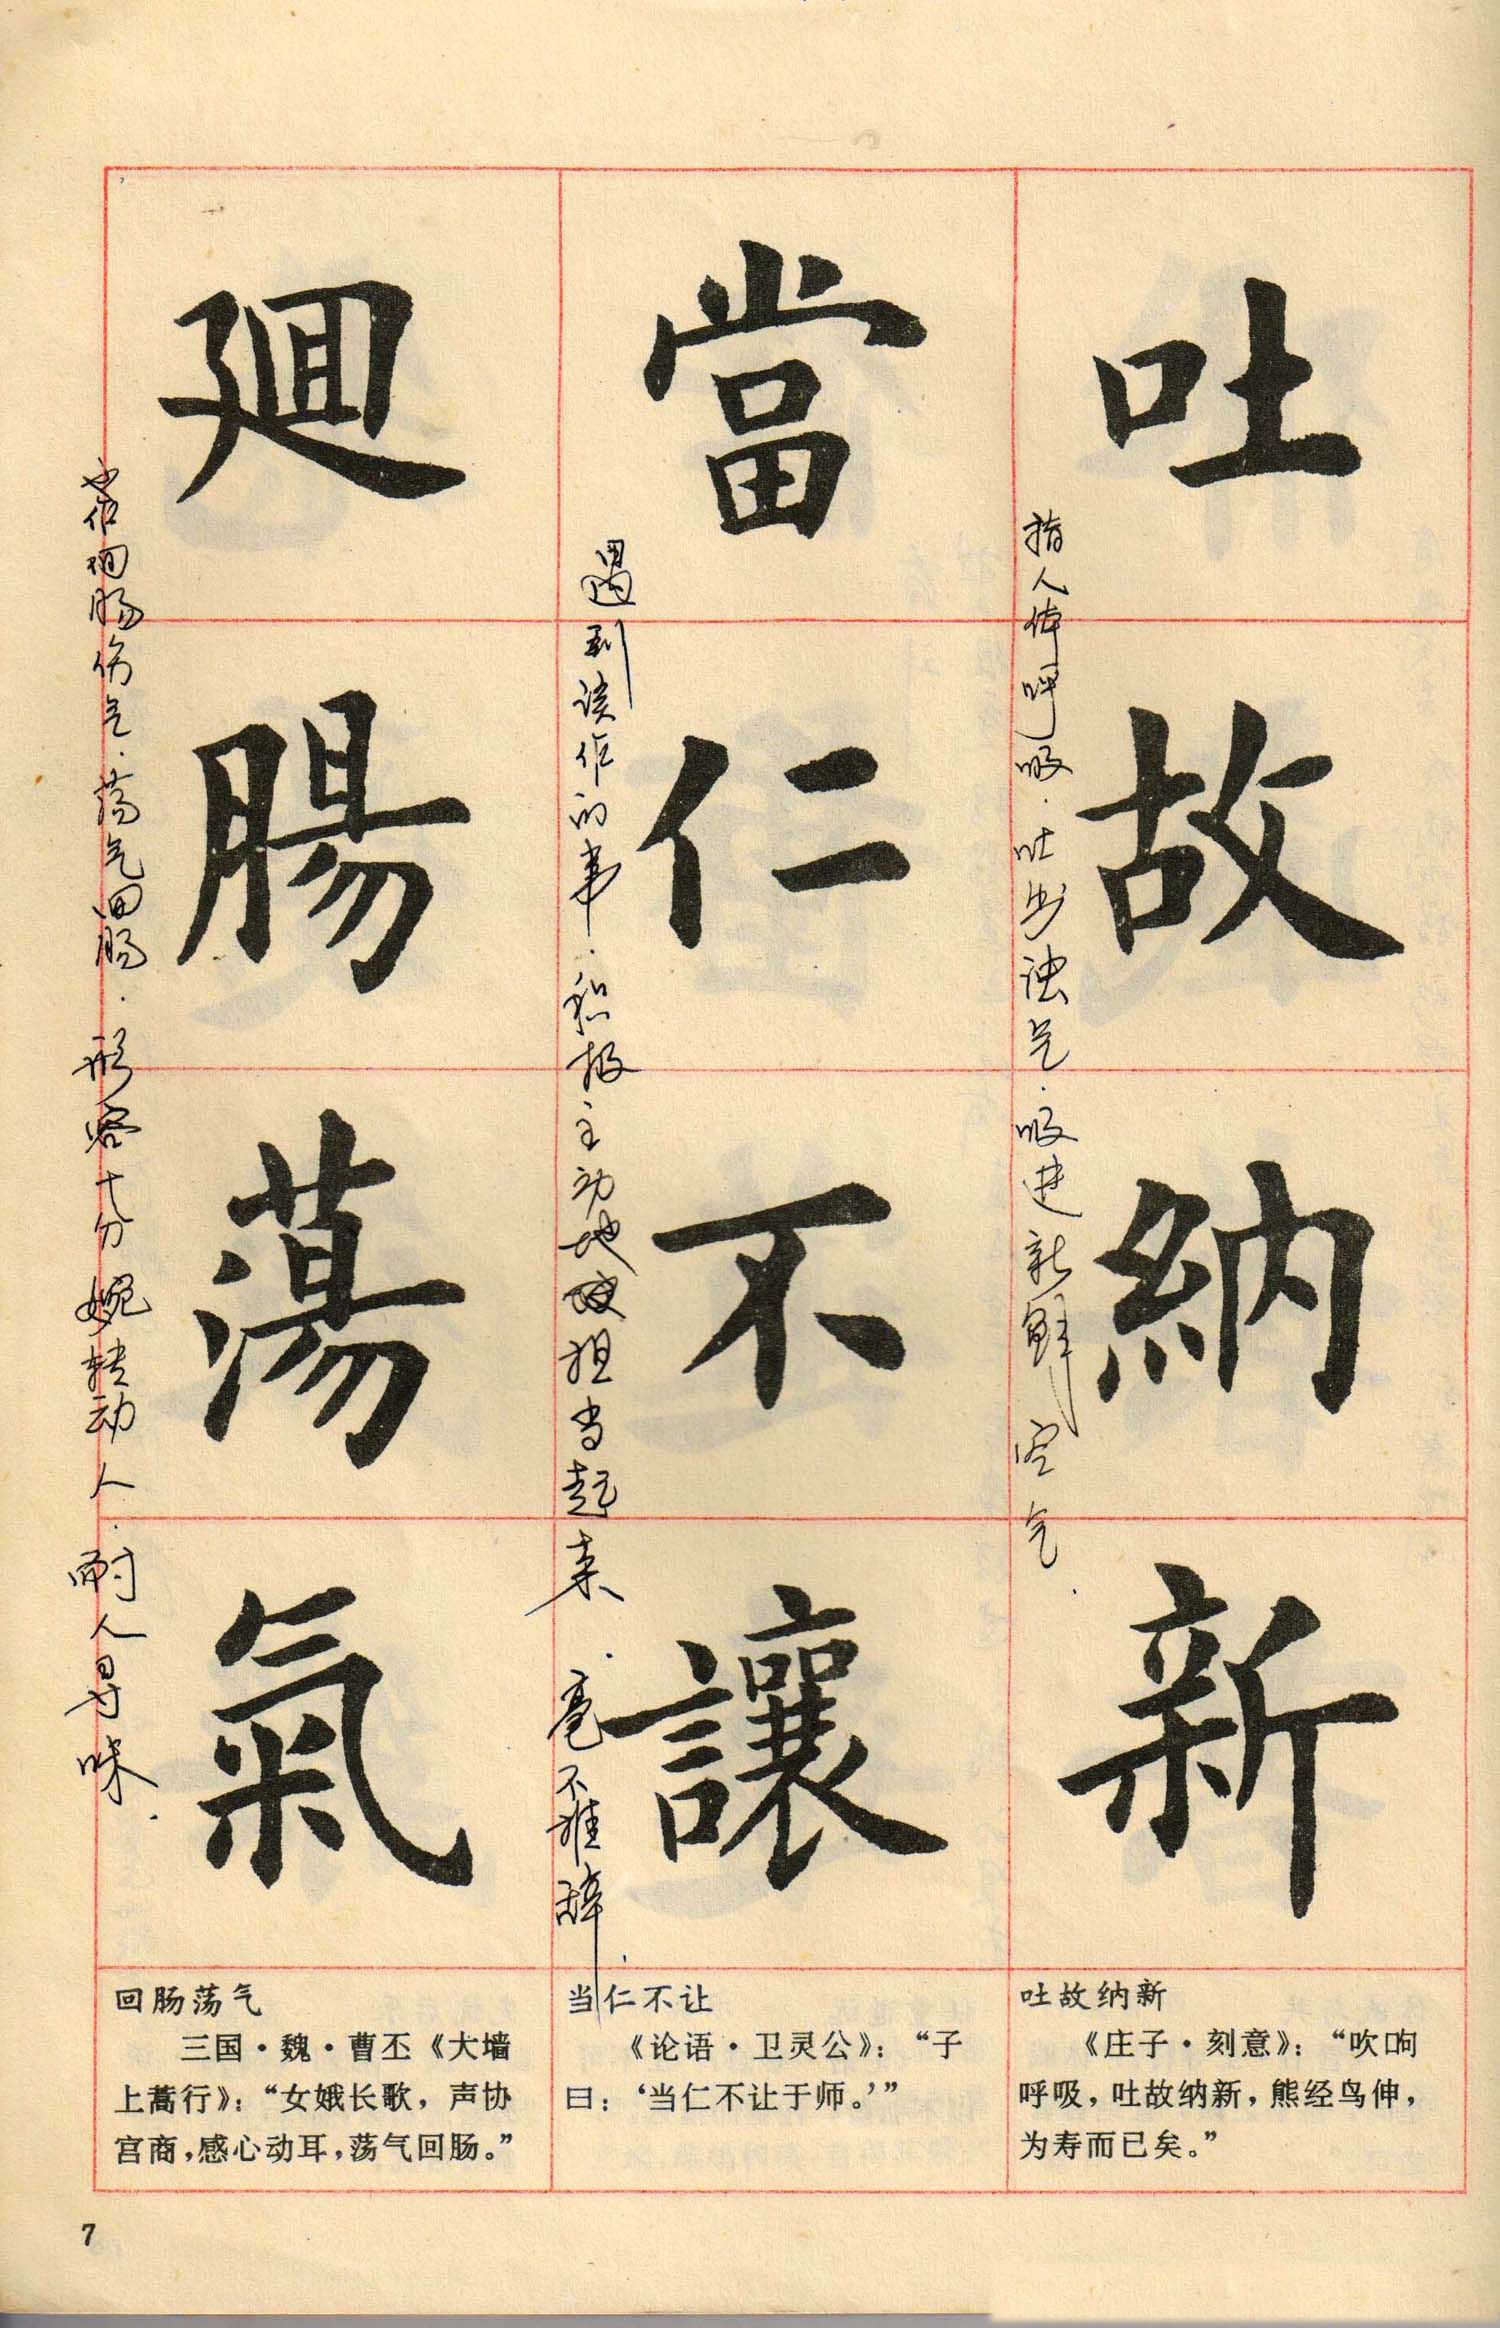 吐故納新
指人体呼吸．吐出浊气．吸进新鲜空气．
當仁不讓
遇到该作的事．积极主动地担当起来．毫不推辞．
廻腸蕩氣
也作回肠伤气．荡气回肠．形容十分婉转动人．耐人寻味．
吐故纳新
《庄子·刻意》：“吹呴
呼吸，吐故纳新，熊经鸟伸，
为寿而已矣。”
当仁不让
《论语·卫灵公》：“子
曰：‘当仁不让于师。’”
回肠荡气
三国·魏·曹丕《大墙
上蒿行》：“女娥长歌，声协
宫商，感心动耳，荡气回肠。”
7